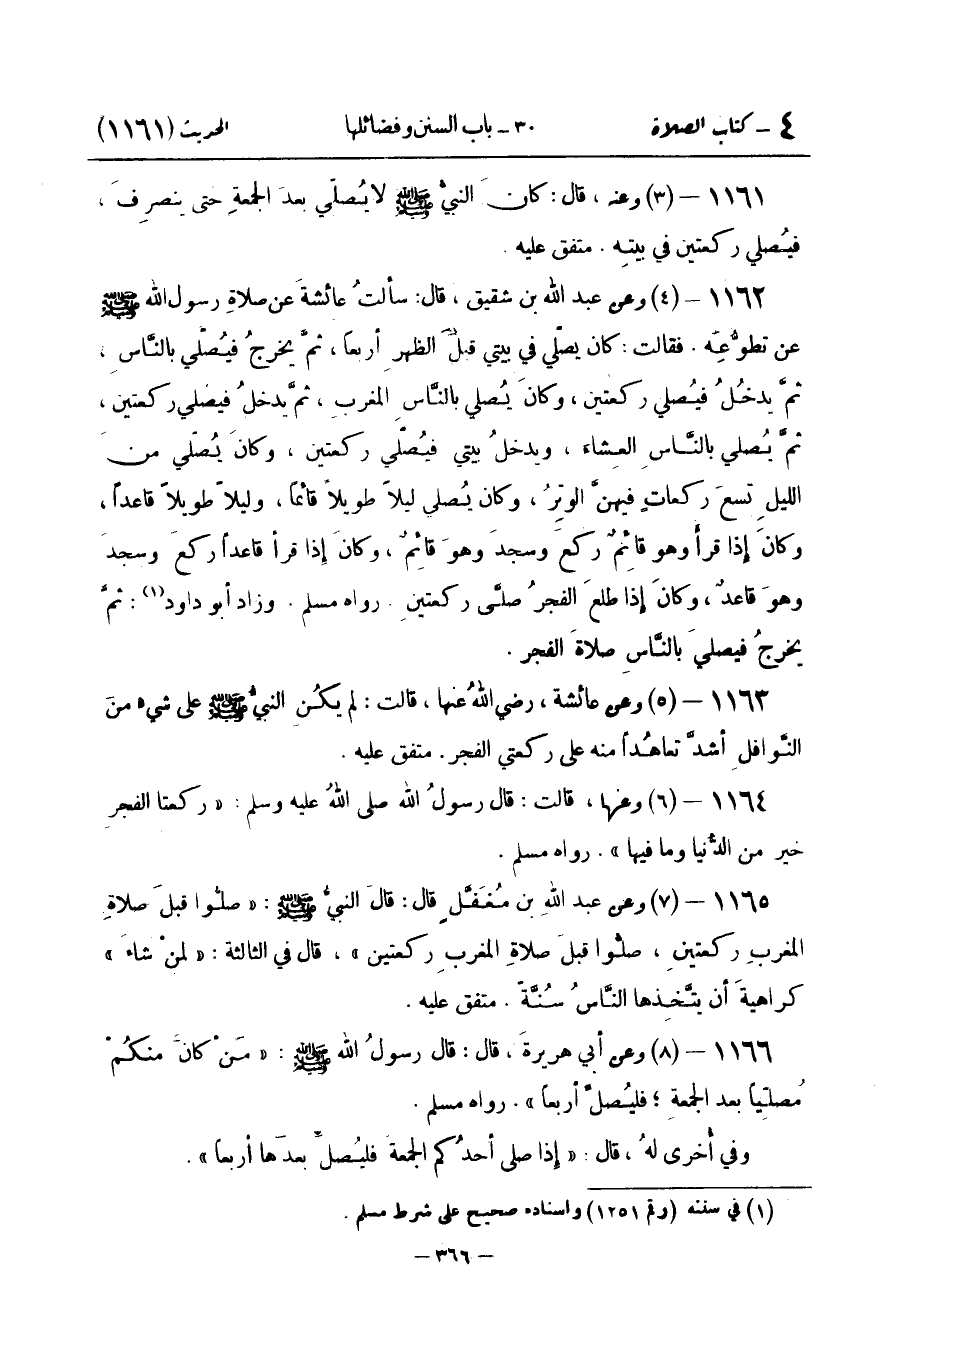 ٤ - كتاب الصلاة ٣٠ - باب السنن وفضائلها الحديث (١١٦١)
١١٦١ - (٣) وعنه ، قال : كانَ النبيُّ ﷺ لا يُصلّي بعدَ الجمعةِ حتى ينصرِفَ ،
فيُصلي ركعتين في بيتِه . متفق عليه .
١١٦٢ - (٤) وعن عبد الله بن شقيق ، قال: سألتُ عائشةَ عن صلاةِ رسول الله ﷺ
عن تطوُّعِه . فقالت : كان يصلّي في بيتي قبلَ الظهرِ أربعاً ، ثمَّ يخرجُ فيُصلّي بالنَّاسِ ،
ثمَّ يدخُلُ فيُصلي ركعتين ، وكانَ يُصلي بالنَّاسِ المغرب ، ثمَّ يدخلُ فيصلي ركعتين ،
ثمَّ يُصلي بالنَّاسِ العِشاء ، ويدخلُ بيتي فيُصلّي ركعتين ، وكانَ يُصلّي من
الليلِ تسعَ ركعاتٍ فيهنَّ الوِترُ ، وكان يُصلي ليلاً طويلاً قائماً ، وليلاً طويلاً قاعداً ،
وكانَ إذا قرأَ وهو قائِمٌ ركعَ وسجدَ وهوَ قائِمٌ ، وكانَ إذا قرأ قاعداً ركعَ وسجدَ
وهوَ قاعدٌ ، وكانَ إذا طلعَ الفجرُ صلَّى ركعتينِ . رواه مسلم . وزاد أبو داود(١) : ثمَّ
يخرجُ فيصليَ بالنَّاسِ صلاةَ الفجر .
١١٦٣ - (٥) وعن عائشة ، رضي اللهُ عنها ، قالت : لم يكُنِ النبيُّ ﷺ على شيءٍ منَ
النَّوافلِ أشدَّ تعاهُداً منه على ركعتي الفجر . متفق عليه .
١١٦٤ - (٦) وعنها ، قالت : قال رسولُ الله صلى اللهُ عليه وسلم : « ركعتا الفجرِ
خير من الدُّنيا وما فيها » . رواه مسلم .
١١٦٥ - (٧) وعن عبد اللهِ بن مُغَفَّلٍ قال : قالَ النبيُّ ﷺ : « صلُّوا قبلَ صلاةِ
المغربِ ركعتينِ ، صلُّوا قبلَ صلاةِ المغربِ ركعتين » ، قال في الثالثة : « لمنْ شاءَ »
كراهيةَ أن يتَّخِذها النَّاسُ سُنَّةً . متفق عليه .
١١٦٦ - (٨) وعن أبي هريرةَ ، قال : قال رسولُ الله ﷺ : « مَنْ كانَ منكُمْ
مُصلّياً بعد الجمعةِ ؛ فليُصلِّ أربعاً » . رواه مسلم .
وفي أُخرى لهُ ، قال : « إذا صلى أحدُكم الجمعةَ فليُصلِّ بعدَها أربعاً » .
(١) في سننه (رقم ١٢٥١) واسناده صحيح على شرط مسلم .
- ٣٦٦ -